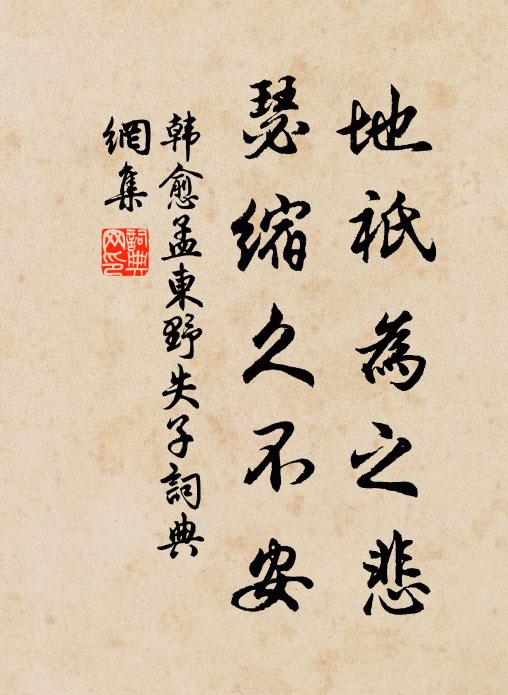 地祇為之悲
瑟縮久不安
韓愈孟東野失子詞典
網集
詞典
网印